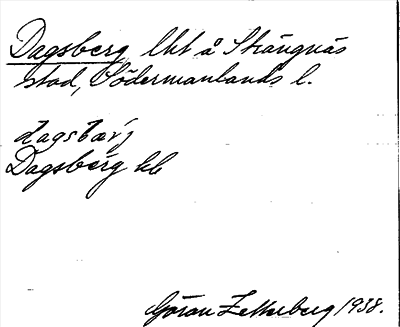 Dagsberg, lht å Strängnäs
stad, Södermanlands l.
dagsbærj
Dagsberg kb
Göran Zetterberg 1938.